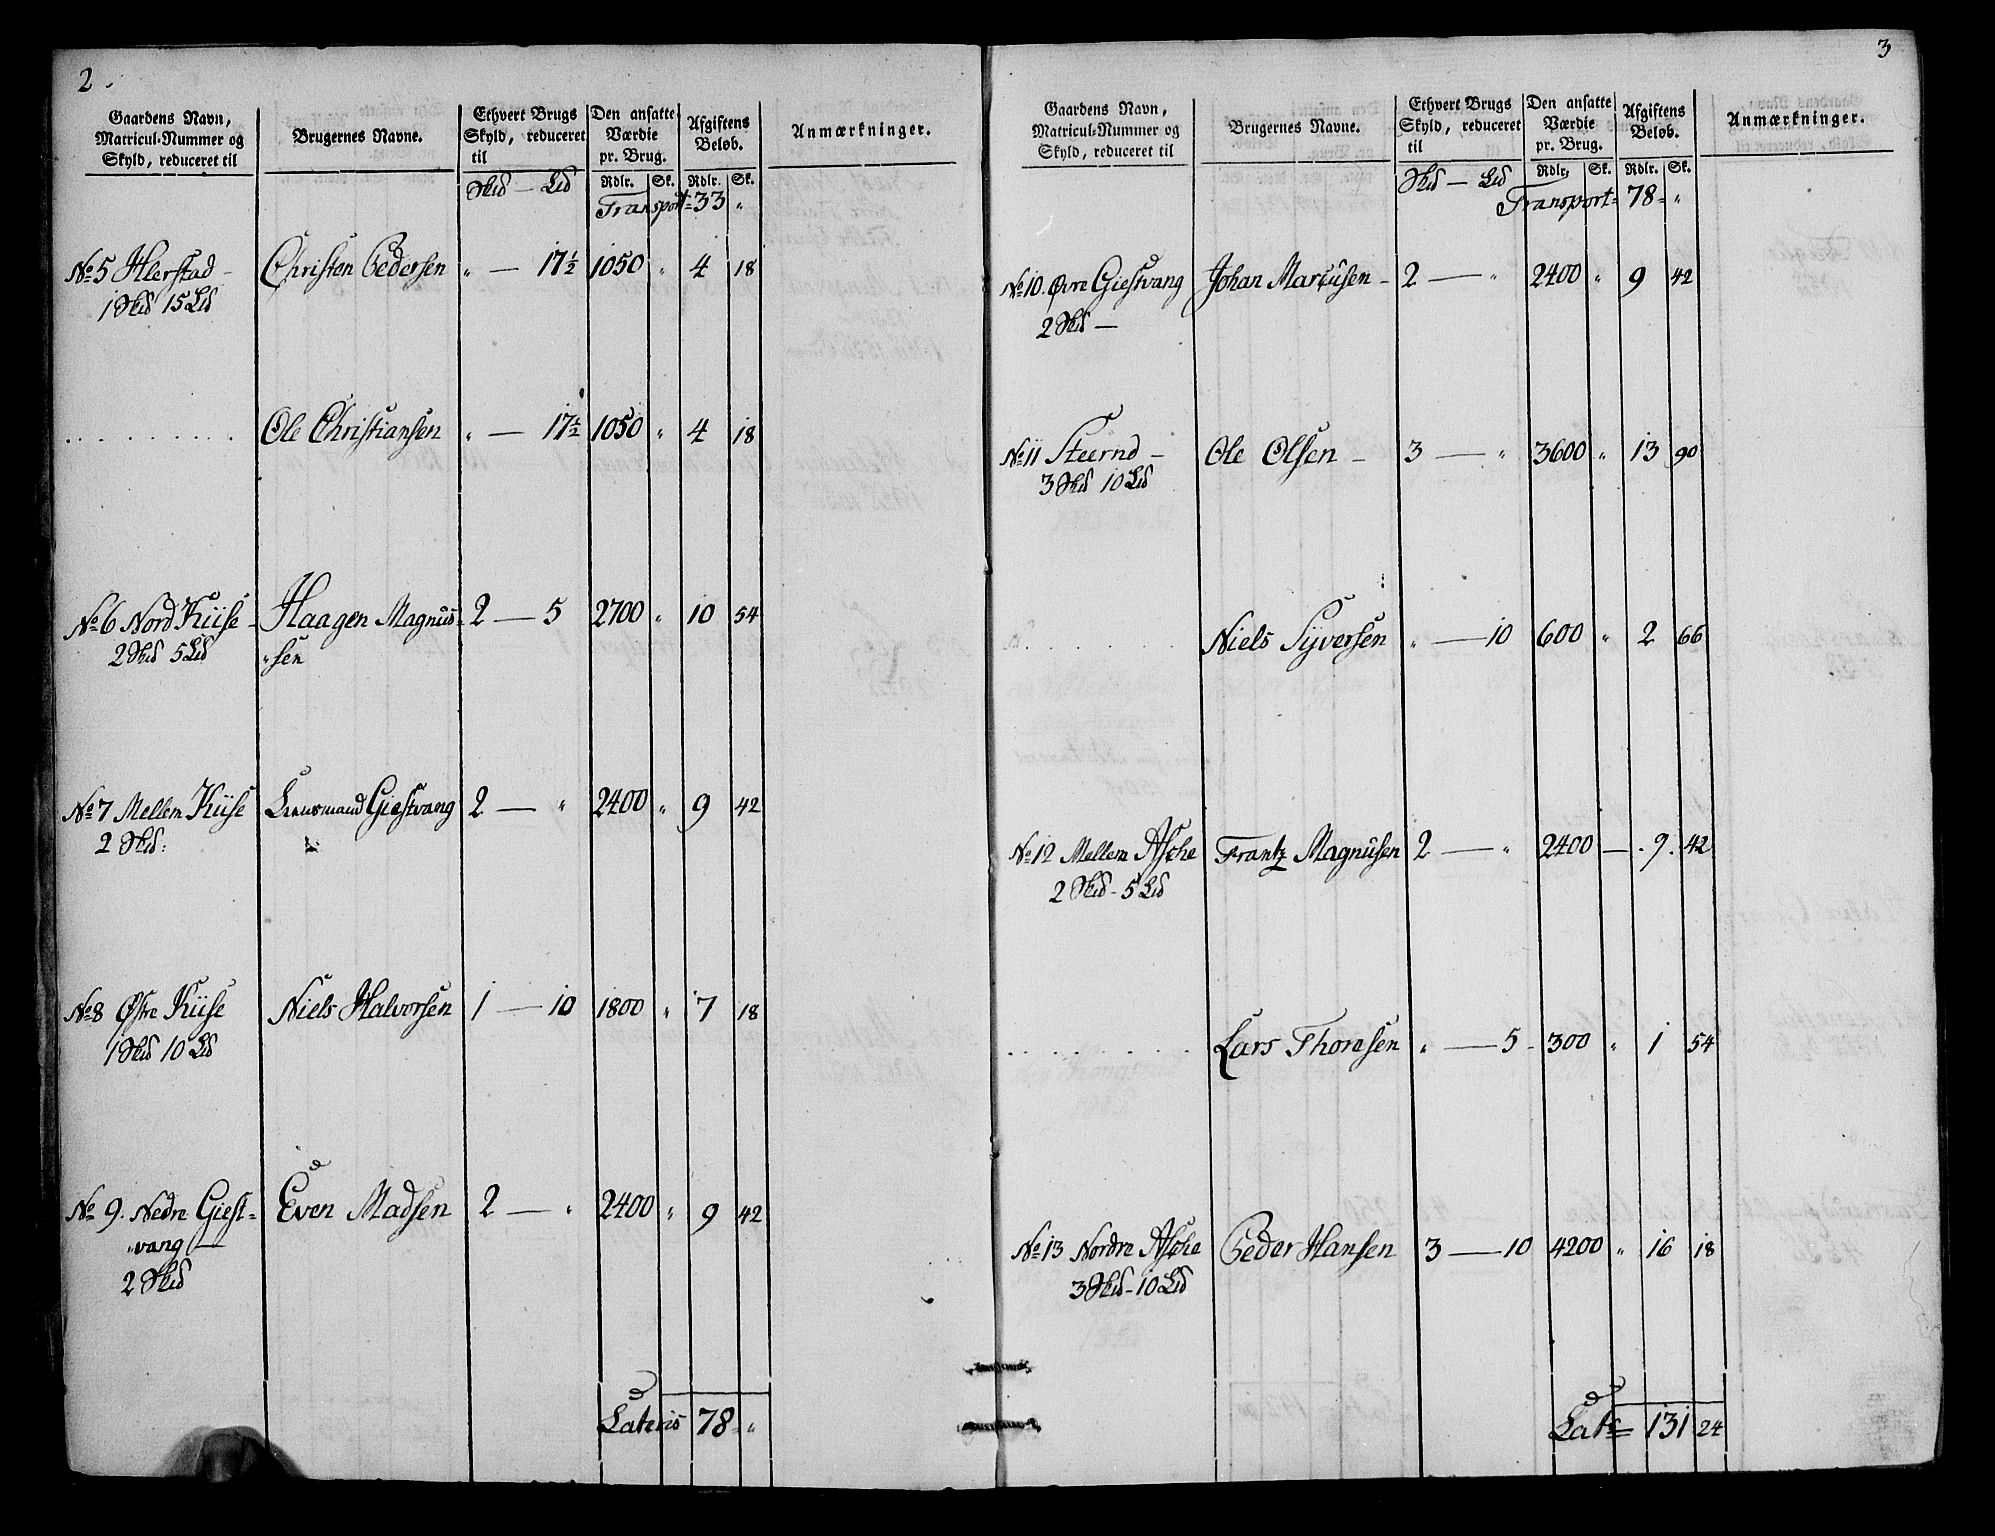 2.
Gaardens Navn, Matricul-Nummer og Skyld, reduceret til | Brugernes Navne. | Ethvert Brugs Skyld, reduceret til | Den ansatte Værdie pr. Brug. | Afgiftens Beløb. | Anmærkninger.
Skd — Ld | Rdlr. | Sk. | Rdlr. | Sk.
Transport = 33 "
No 5 Hlerstad - | Christen Pedersen | " — 17½ | 1050 | " | 4 | 18
1 Skd 15 Ld
. . . . . . . . . | Ole Christiansen | " — 17½ | 1050 | " | 4 | 18
No 6 Nord Kiise - | Haagen Magnus= | 2 — 5 | 2700 | " | 10 | 54
2 Skd 5 Ld | "sen
No 7 Mellem Kiise | Lensmand Giestvang | 2 — " | 2400 | " | 9 | 42
2 Skd:
No 8 Østre Kiise | Niels Halvorsen | 1 — 10 | 1800 | " | 7 | 18
1 Skd 10 Ld
No 9. Nedre Giest= | Even Madsen | 2 — " | 2400 | " | 9 | 42
"vang —
2 Skd
Lateris 78 "
3
Gaardens Navn, Matricul-Nummer og Skyld, reduceret til | Brugernes Navne. | Ethvert Brugs Skyld, reduceret til | Den ansatte Værdie pr. Brug. | Afgiftens Beløb. | Anmærkninger.
Skd — Ld | Rdlr. | Sk. | Rdlr. | Sk.
Transport = 78 = "
No 10. Øvre Giestvang | Johan Marcusen - | 2 — " | 2400 | " | 9 | 42
2 Skd —
No 11 Steernd — | Ole Olsen — | 3 — " | 3600 | " | 13 | 90
3 Skd 10 Ld
. . . . . . . . . | Niels Syversen | " — 10 | 600 | " | 2 | 66
No 12 Mellem Aske | Frantz Magnusen | 2 — " | 2400 | — | . 9 . | 42
2 Skd - 5 Ld
. . . . . . . . . | Lars Thoresen | " — 5 - | 300 | " | 1 | 54
No 13 Nordre Aske | Peder Hansen | 3 — 10 | 4200 | " | 16 | 18
3 Skd - 10 Ld
Lats = 131 24